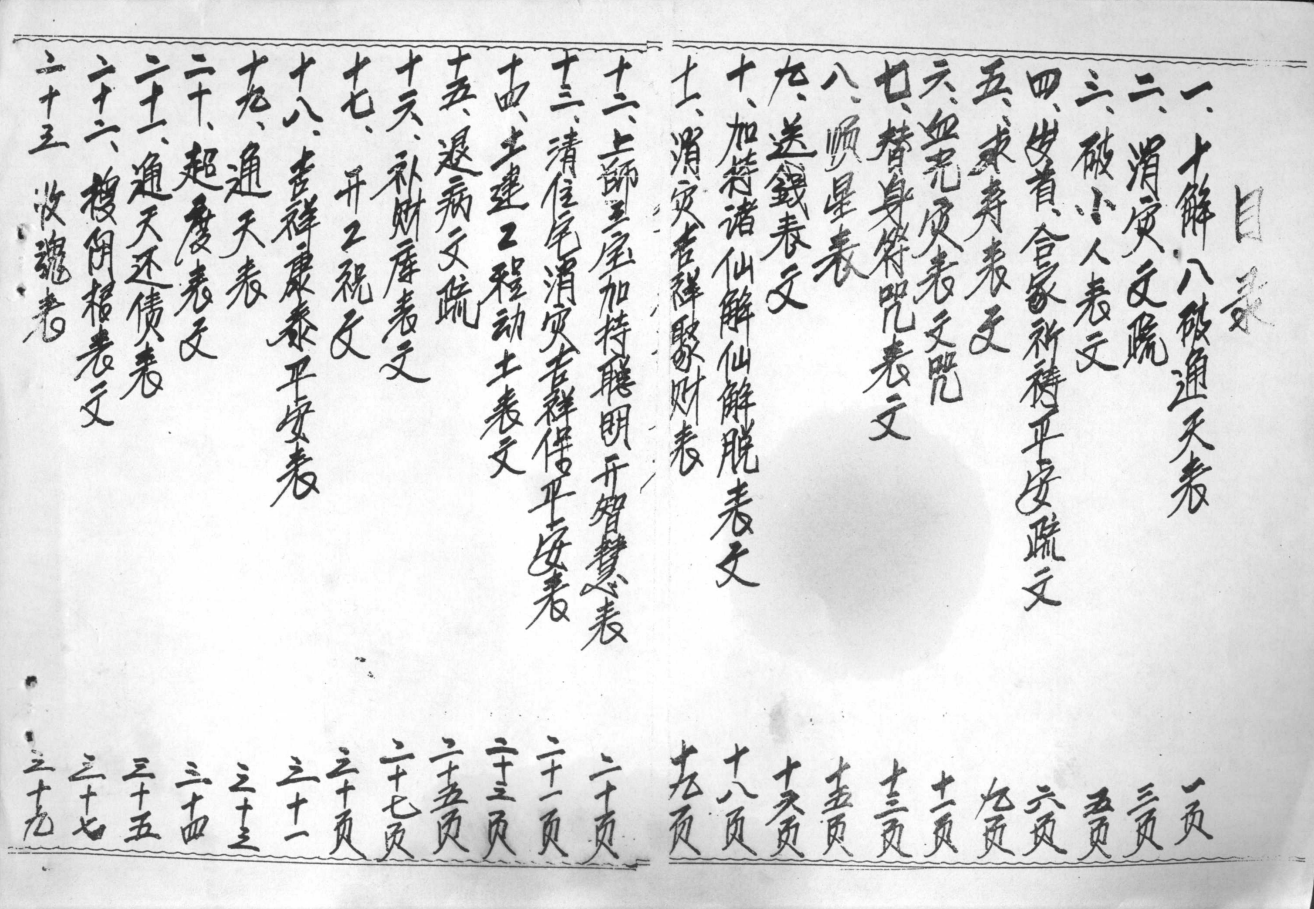 目录
一、十解八破通天表 一页
二、消灾文疏 三页
三、破小人表文 五页
四、岁首、合家祈祷平安疏文 六页
五、求寿表文 九页
六、血光灾表文咒 十一页
七、替身符咒表文 十三页
八、顺星表 十五页
九、送錢表文 十六页
十、加符诸仙解仙解脱表文 十八页
十一、消灾吉祥聚财表 十九页
十二、上師三宝加持聪明开智慧表 二十页
十三、清住宅消灾吉祥保平安表 二十一页
十四、土建工程动土表文 二十三页
十五、退病文疏 二十五页
十六、补财库表文 二十七页
十七、开工祝文 三十页
十八、吉祥康泰平安表 三十一
十九、通天表 三十三
二十、超度表文 三十四
二十一、通天还债表 三十五
二十二、搜阴招表文 三十七
二十三 收魂表 三十九